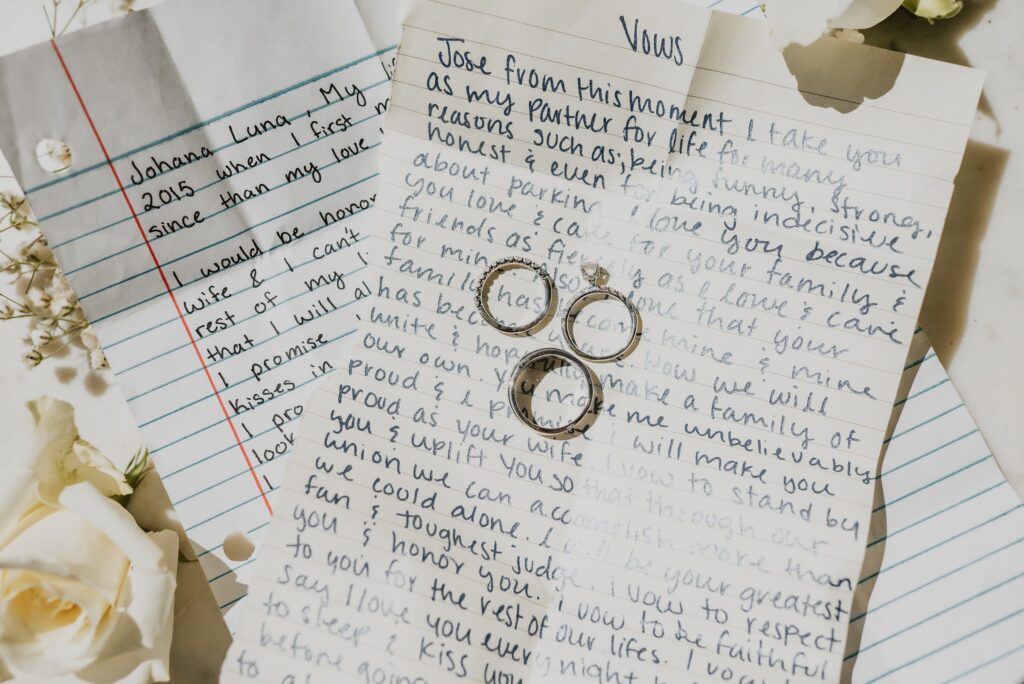 Johana Luna, My
2015 when I first
since than my love
I would be honor
wife & I can't
rest of my l
that I will al
I promise
kisses in
I pro
look
I
Vows
Jose from this moment I take you
as my partner for life for many
reasons such as; being funny, strong,
honest & even for being indecisive
about parking. I love you because
you love & care for your family &
friends as fiercely as I love & care
for mine. Also I love that your
family has become mine & mine
has become yours. Now we will
unite & hopefully make a family of
our own. You make me unbelievably
proud & I promise I will make you
proud as your wife. I vow to stand by
you & uplift you so that through our
union we can accomplish more than
we could alone. I will be your greatest
fan & toughest judge. I vow to respect
you & honor you. I vow to be faithful
to you for the rest of our lifes. I vow
say I love you every night
to sleep & kiss you
before going
to